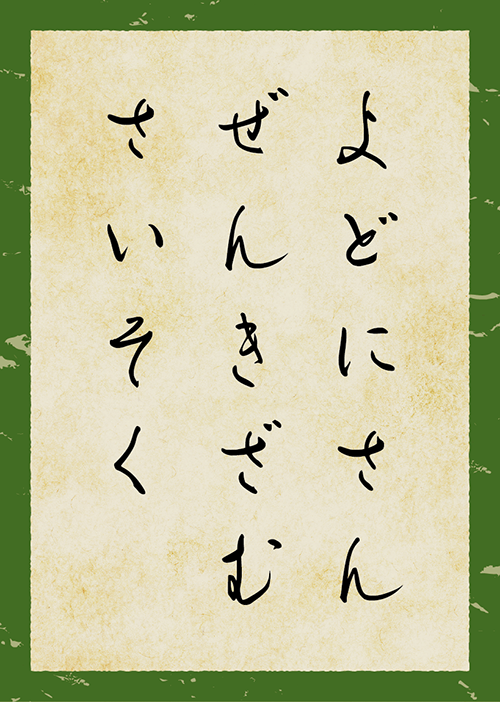 よどにさん
ぜんきざむ
さいそく